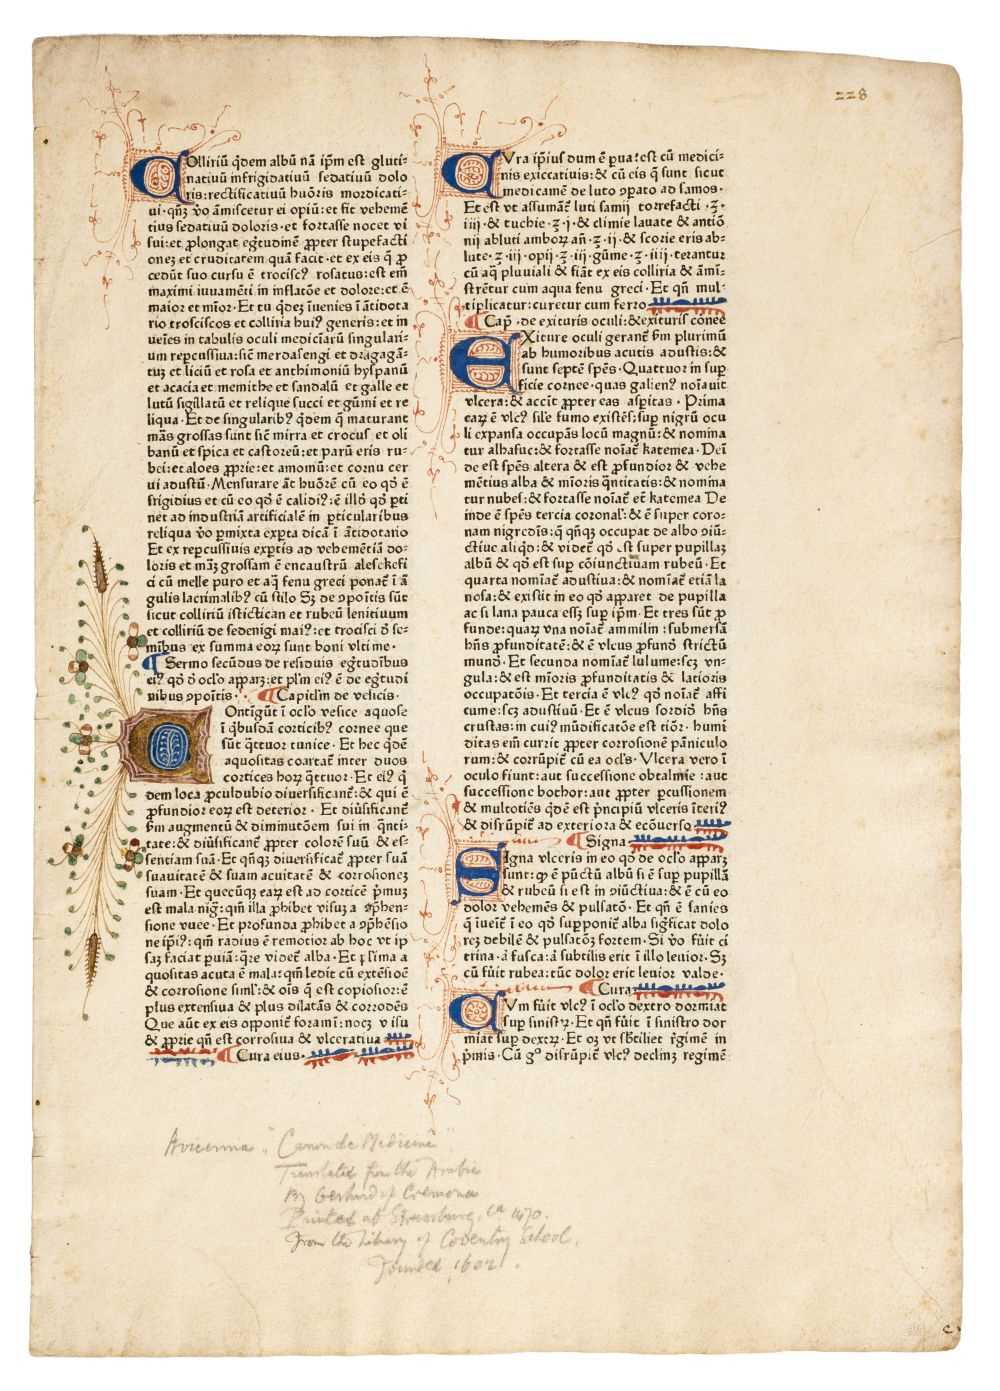 228
Olliriũ q̃dem albũ nã ip̃m est gluti⸗
natiuũ infrigidatiuũ sedatiuũ dolo
ris:rectificatiuũ huõris mordicati⸗
ui·qñꝫ ṽo ãmiscetur ei opiũ:et fit vehemẽ
tius sedatiuũ doloris·et fortasse nocet vi
sui:et ꝓlongat egtudinẽ ꝓpter stupefacti
oneꝫ et cruditatem quã facit·et ex eis q̃ ꝓ
cedũt suo cursu ẽ trociscꝰ rosatus:est em̃
maximi iuuamẽti in inflatõe et dolore:et ẽ
maior et mĩor·Et tu q̃deꝫ ĩuenies ĩ ãtidota
rio trosciscos et colliria huiꝰ generis:et in
in tabulis oculi mediciarũ singulari⸗
um repcussiua:sic̃ merdasengi et dragagã⸗
tuꝫ et liciũ et rosa et anthimoniũ hyspanũ
et acacia et memithe et sandalũ et galle et
lutũ sigillatũ et relique succi et gũmi et re
liqua·Et de singularibꝰ q̃dem q̃ maturant
mãs grossas sunt sic̃ mirra et crocus et oli
banũ et spica et castoreũ:et parũ eris ru⸗
bei:et aloes ꝓprie:et amomũ:et cornu cer
ui adustũ·Mensurare ãt huõrẽ cũ eo qð ẽ
frigidius et cũ eo qð ẽ calidiꝰ:ẽ illð qð ꝑti
net ad industriã artificialẽ in ꝑticularibus
reliqua ṽo ꝑmixta exꝑta dicã ĩ ãtidotario
Et ex repcussiuis exꝑtis ad vehemẽtiã do⸗
loris et mãꝫ grossam ẽ encaustrũ alesekefi
ci cũ melle puro et aq̃ fenu greci ponat̃ ĩ ã
gulis lacrimalibꝰ cũ stilo Sꝫ de ꝯpoitis sũt
sicut colliriũ istictican et rubeũ lenitiuum
et colliriũ de sedenigi maiꝰ:et trocisci ð se⸗
mĩbus ex summa eoꝝ sunt boni vltime·
¶ Sermo secũdus de residuis egtudĩbus
eiꝰ qð ð ocl̃o apparꝫ:et pl'm eiꝰ ẽ de egtudi
nibus ꝯpoitis· ¶ Capitl'm de vesicis·
Ontĩgũt ĩ ocl̃o vesice aquose
ĩ q̃busdã corticibꝰ cornee que
sũt q̃ttuor tunice·Et hec q̃dẽ
aquositas coartat̃ inter duos
cortices hoꝝ q̃ttuor·Et eiꝰ q̃
dem loca ꝓculdubio diuersificant̃:& qui ẽ
ꝓfundior eoꝝ est deterior·Et diũsificant̃
ẽm augmentũ & diminutõem sui in q̃nti⸗
tate:& diũsificant̃ ꝓpter colorẽ suũ & es⸗
sentiam suã·Et qñqꝫ diuersificat̃ ꝓpter suã
suauitatẽ & suam acuitatẽ & corrosioneꝫ
suam·Et quecũqꝫ eaꝝ est ad corticẽ p̃muꝫ
est mala nigˀ:qm̃ illa ꝓhibet visuꝫ a ꝯp̃hen⸗
sione vuee·Et profunda ꝓhibet a ꝯp̃hẽsio
ne ip̃iꝰ:qm̃ radius ẽ remotior ab hoc vt ip
saꝫ faciat puiã:q̃re videt̃ alba·Et ꝑl'ima a
quositas acuta ẽ mala:qm̃ ledit cũ extẽsiõe
& corrosione siml':& oĩs q̃ est copiosior:ẽ
plus extensiua & plus dilatãs & corrodẽs
Que aũt ex eis opponit̃ foraminĩ:nocꝫ visu
& ꝓprie qñ est corrosiua & vlceratiua
¶ Cura eius·
Vra ip̃ius dum ẽ ꝑua:est cũ medici⸗
nis exiccatiuis:& cũ eis q̃ sunt sicut
medicamẽ de luto ꝯpato ad samos·
Et est vt assumat̃ luti samij torrefacti·℥·
iiij·& tuchie·℥·i·& climie lauate & antiõ
nij abluti amboꝝ añ·℥·ij·& scorie eris ab⸗
lute·℥·iij·opij·℥·iij·gũme·℥·iiij·terantur
cũ aq̃ pluuiali & fiãt ex eis colliria & ãmi⸗
strẽtur cum aqua fenu greci·Et qñ mul⸗
tiplicatur:curetur cum ferro
¶ Cap̃·de exituris oculi:& exituris cornee
Xiture oculi gerant̃ ẽm plurimũ
ab humoribus acutis adustis:&
sunt septẽ sp̃es·Quattuor in suꝑ
ficie cornee·quas galienꝰ noĩauit
vlcera:& accit̃ ꝓpter eas asꝑitas·Prima
eaꝝ ẽ vlcꝰ sil'e fumo existẽs:suꝑ nigrũ ocu
li expansa occupãs locũ magnũ:& nomina
tur alhafuc:& fortasse noĩat̃ katemea·Deĩ
de est sp̃es altera & est ꝓfundior & vehe
mẽtius alba & mĩoris q̃ntitatis:& nomina
tur nubes:& fortasse noĩat̃ et̃ katemea De
inde ẽ sp̃es tercia coronal':& ẽ super coro⸗
nam nigredĩs:q̃ qñqꝫ occupat de albo ꝯiũ⸗
ctiue aliqð:& videt̃ qð est super pupillaꝫ
albũ & qð est suꝑ cõiunctiuam rubeũ·Et
quarta nomĩat̃ adustiua:& nomĩat̃ etiã la
nosa:& existit in eo qð apparet de pupilla
ac si lana pauca essꝫ suꝑ ip̃m·Et tres sũt ꝓ
funde:quaꝝ vna noĩat̃ ammilin:submersã
hñs ꝓfunditatẽ:& ẽ vlcus ꝓfunð strictũ
mund·Et secunda nomĩat̃ lulume:scꝫ vn⸗
gula:& est mĩoris ꝓfunditatis & latioris
occupatõis·Et tercia ẽ vlcꝰ qð noĩat̃ affi
cume:scꝫ adustiuũ·Et ẽ vlcus sordið hñs
crustas:in cuiꝰ mũdificatõe est tiõr·humi
ditas em̃ currit ꝓpter corrosionẽ pãniculo
rum:& corrũpit̃ cũ ea ocl's·Vlcera vero ĩ
oculo fiunt:aut successione obtalmie:aut
successione bothor:aut ꝓpter ꝑcussionem
& multotiẽs q̃dẽ est p̃ncipiũ vlceris ĩteriꝰ
& disrũpit̃ ad exteriora & ecõuerso
¶ Signa
Igna vlceris in eo qð de ocl̃o apparꝫ
sunt:qꝫ ẽ pũctũ albũ si ẽ suꝑ pupillã
& rubeũ si est in ꝯiũctiua:& ẽ cũ eo
dolor vehemẽs & pulsatõ·Et qñ ẽ sanies
q̃ ĩueit̃ ĩ eo qð suꝑponit̃ alba sigficat dolo
reꝫ debilẽ & pulsatõꝫ fortem·Si ṽo fũit ci
trina·a fusca:a subtilis erit ĩ illo leuior·Sꝫ
cũ fũit rubea:tũc dolor erit leuior valde·
¶ Cura
Vm fũit vlcꝰ ĩ ocl̃o dextro dormiat
suꝑ sinistꝝ·Et qñ fũit ĩ sinistro dor
miat suꝑ dextꝝ·Et oꝫ vt sb̃tiliet r̃gimẽ in
p̃mis·Cũ gº disrũpit̃ vlcꝰ declinꝫ regimẽ
Avicenna "Canon de Medicine"
Translated from the Arabic
By Gerhard of Cremona
Printed at Strassburg, ca 1470.
From the Library of Coventry School.
Founded 1602.